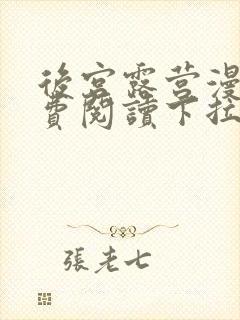 後宮露营漫
費閱讀下拉
張老七